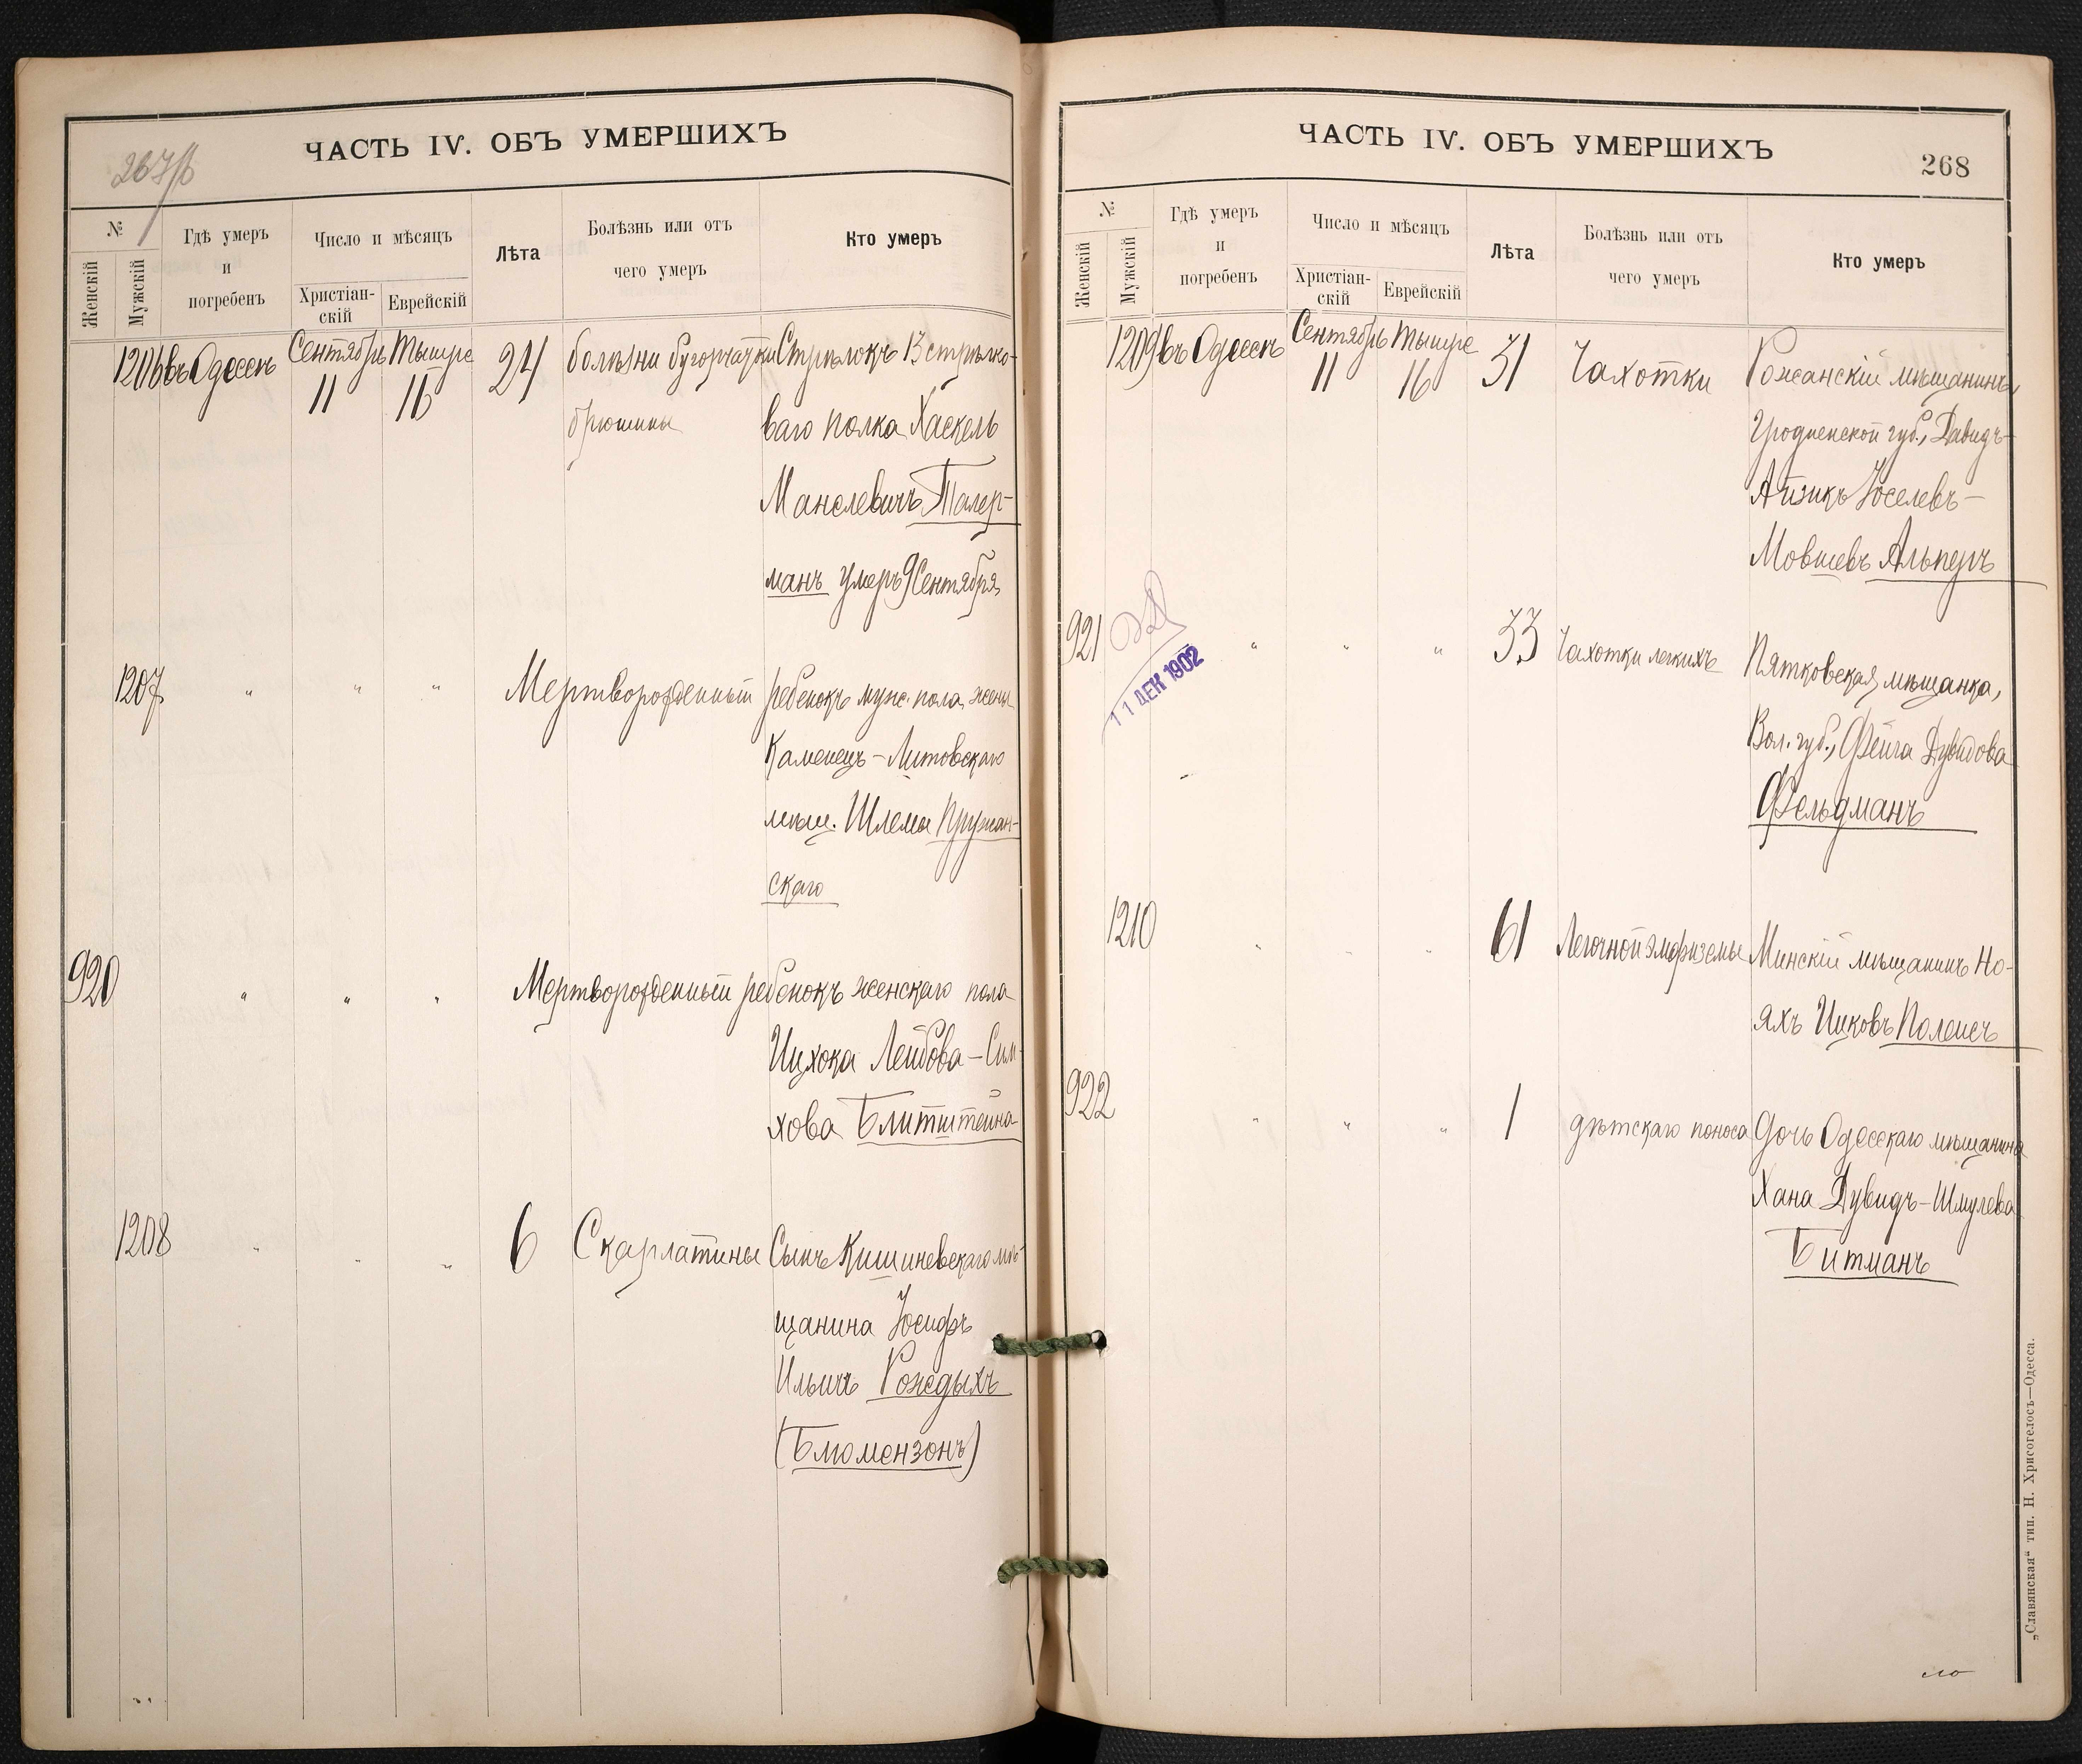 267/б
ЧАСТЬ IV. ОБЪ УМЕРШИХЪ
№
Женскій
Мужскій
Гдѣ умеръ
и
погребенъ
Число и мѣсяцъ
Христіан-
скій
Еврейскій
Лѣта
Болѣзнь или отъ
чего умеръ
Кто умеръ
1206 въ Одессѣ Сентябрь 11 Тышре 16 24 болѣзни бугорчатки Стрѣлокъ 13 стрѣлко-
брюшины ваго полка Хаскель
Манелевичъ Талер-
манъ умеръ 9 Сентября
1207 " " " Мертворожденный ребенокъ муж. пола жены
Каменецъ-Литовскаго
мѣщ. Шлемы Пружан-
скаго
920 " " " Мертворожденный ребенокъ женскаго пола
Ицхока Лейбова-Сим-
хова Блитштейна
1208 " " " 6 Скарлатины Сынъ Кишиневскаго мѣ-
щанина Іосифъ
Ильичъ Рождыхъ
(Блюмензонъ)
ЧАСТЬ IV. ОБЪ УМЕРШИХЪ
268
№
Женскій
Мужскій
Гдѣ умеръ
и
погребенъ
Число и мѣсяцъ
Христіан-
скій
Еврейскій
Лѣта
Болѣзнь или отъ
чего умеръ
Кто умеръ
1209 въ Одессѣ Сентябрь 11 Тышре 16 31 Чахотки Рожанскій мѣщанинъ
Гродненской губ., Давидъ-
Айзикъ Іоселевъ-
Мовшевъ Альперъ
921 " " " 33 Чахотки легкихъ Пятковская мѣщанка,
11 ДЕК 1902
Вол. губ., Фейга Дувидова
Фельдманъ
1210 " " " 61 Легочной эмфиземы Минскій мѣщанинъ Но-
яхъ Ицковъ Полеисъ
922 " " " 1 дѣтскаго поноса Дочь Одесскаго мѣщанина
Хана Дувидъ-Шмулева
Битманъ
„Славянская" тип. Н. Хрисогелосъ—Одесса.